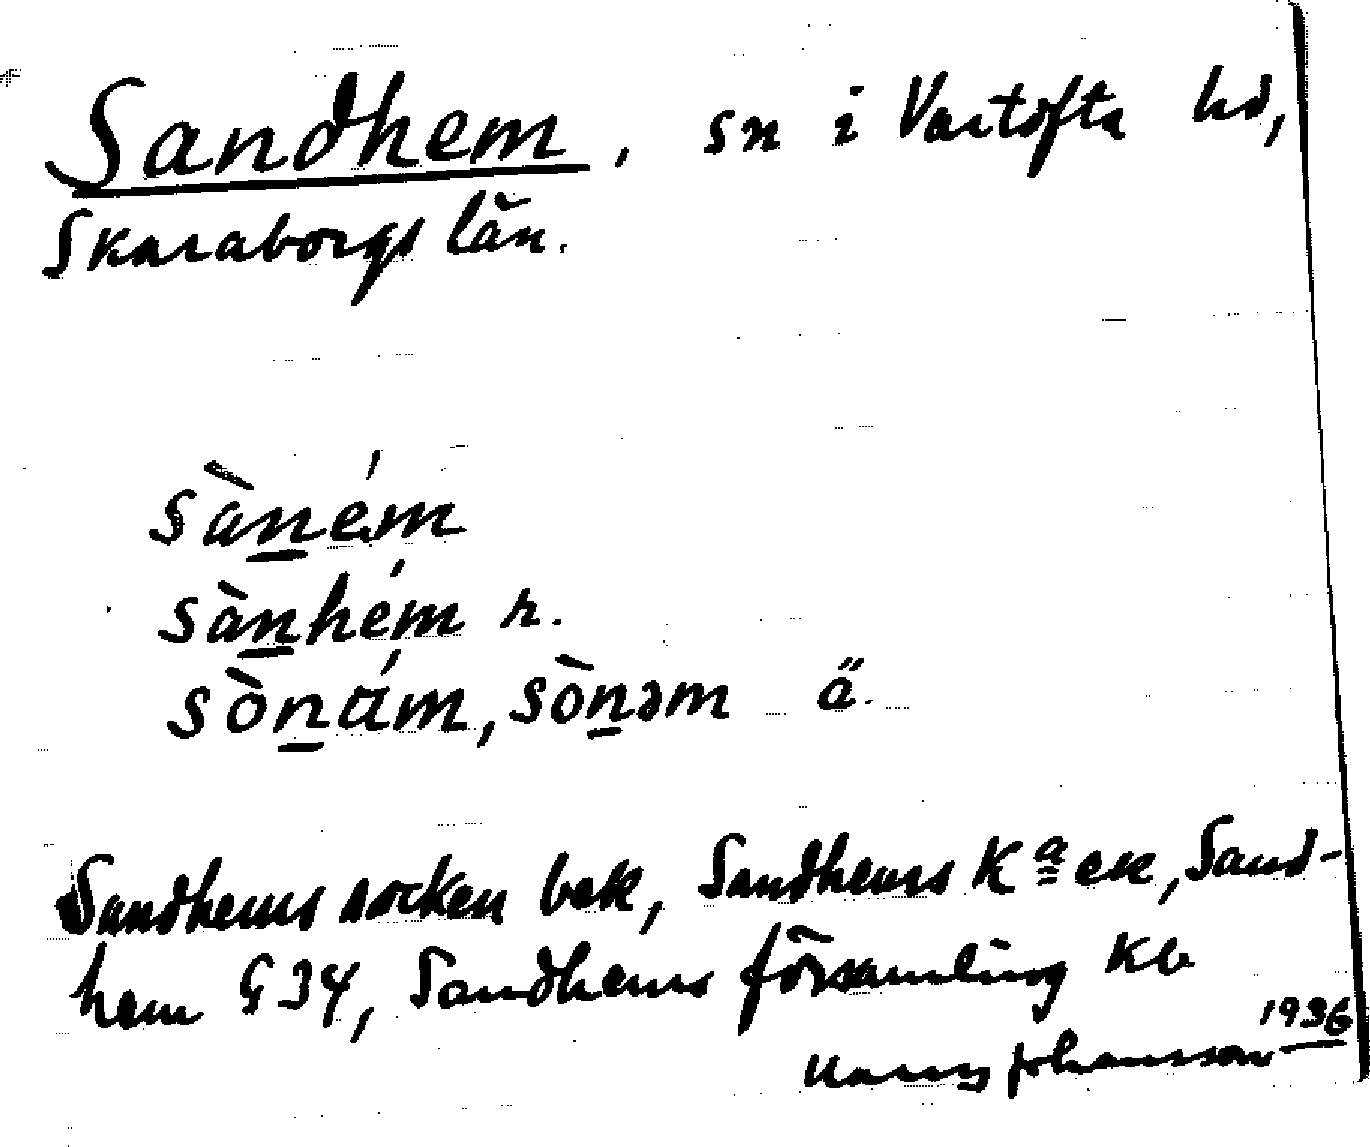 Sandhem, sn i Vartofta hd,
Skaraborgs län.
sàn̲ém
sàn̲hém n.
sòn̲ám, sòn̲əm ä.
Sandhems socken bek, Sandhems Kª ek, Sand-
hem G 34, Sandhems församling kb
Johansson 1936